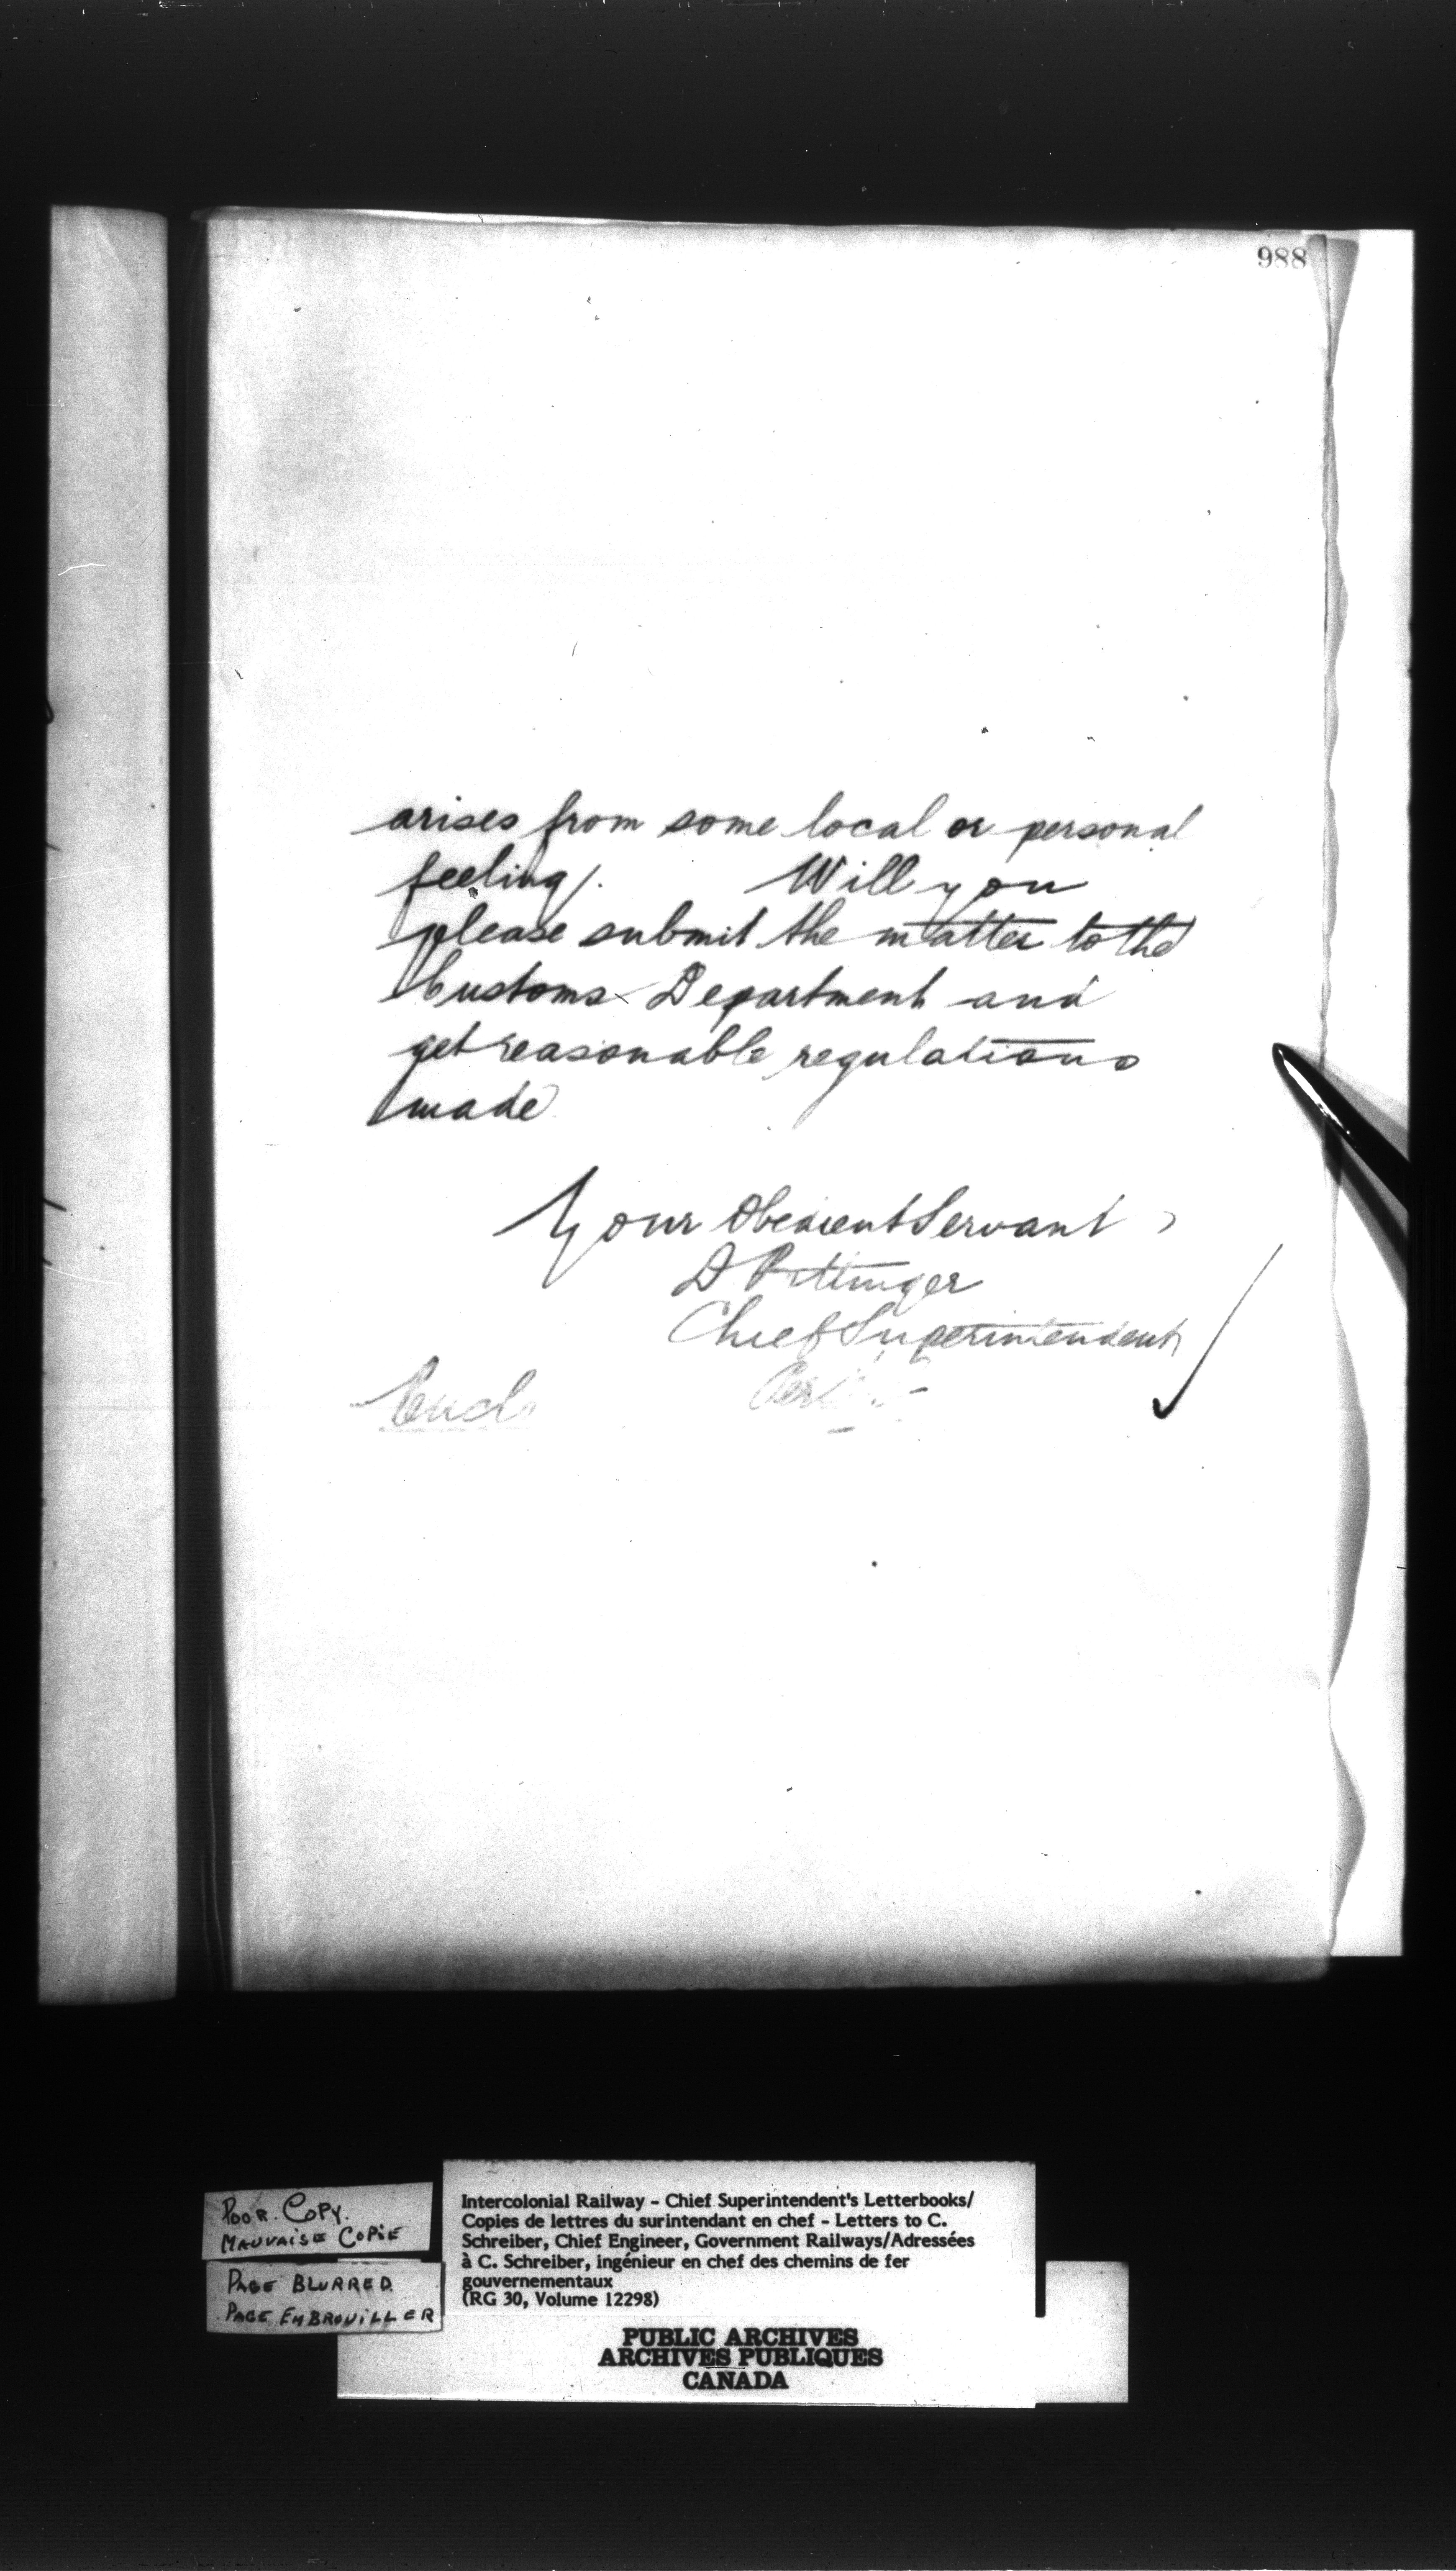 988
arises from some local or personal
feeling. Will you
please submit the matter to the
Customs Department and
get reasonable regulations
made
Your Obedient Servant
D Pottinger
Chief Superintendent
Per
Encl.
POOR COPY.
MAUVAISE COPIE
PAGE BLURRED.
PAGE EMBROUILLER
Intercolonial Railway – Chief Superintendent's Letterbooks/
Copies de lettres du surintendant en chef – Letters to C.
Schreiber, Chief Engineer, Government Railways/Adressées
à C. Schreiber, ingénieur en chef des chemins de fer
gouvernementaux
(RG 30, Volume 12298)
PUBLIC ARCHIVES
ARCHIVES PUBLIQUES
CANADA